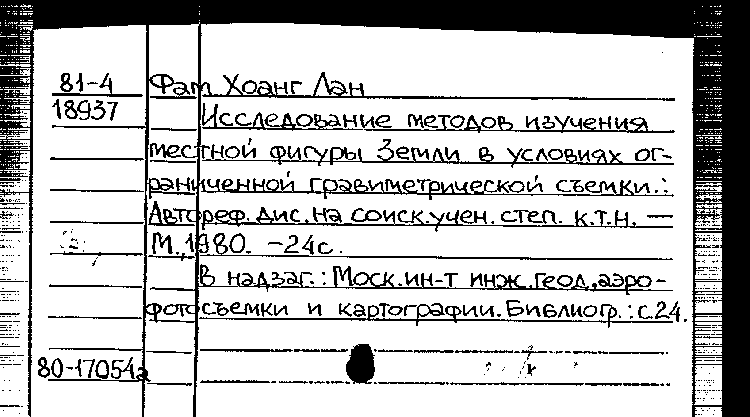 81-4 Фам Хоанг Лан
18937 Исследование методов изучения
местной фигуры Земли в условиях ог-
раниченной гравиметрической съемки.:
Автореф. дис. на соиск. учен. степ. к.т.н. —
М., 1980. -24с.
В надзаг.: Моск. ин-т инж. геод., аэро-
фотосъемки и картографии. Библиогр.: с.24.
80-17054а